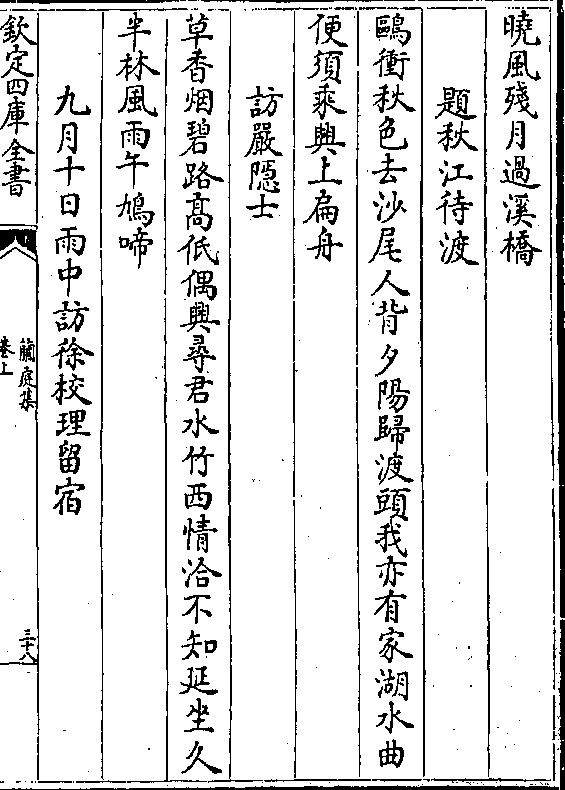 曉風殘月過溪橋
題秋江待渡
鷗衝秋色去沙尾人背夕陽歸渡頭我亦有家湖水曲
便須乘興上扁舟
訪嚴隱士
草香烟碧路高低偶興尋君水竹西情洽不知延坐久
半林風雨午鳩啼
九月十日雨中訪徐校理留宿
欽定四庫全書
蘭庭集
卷上
三十八